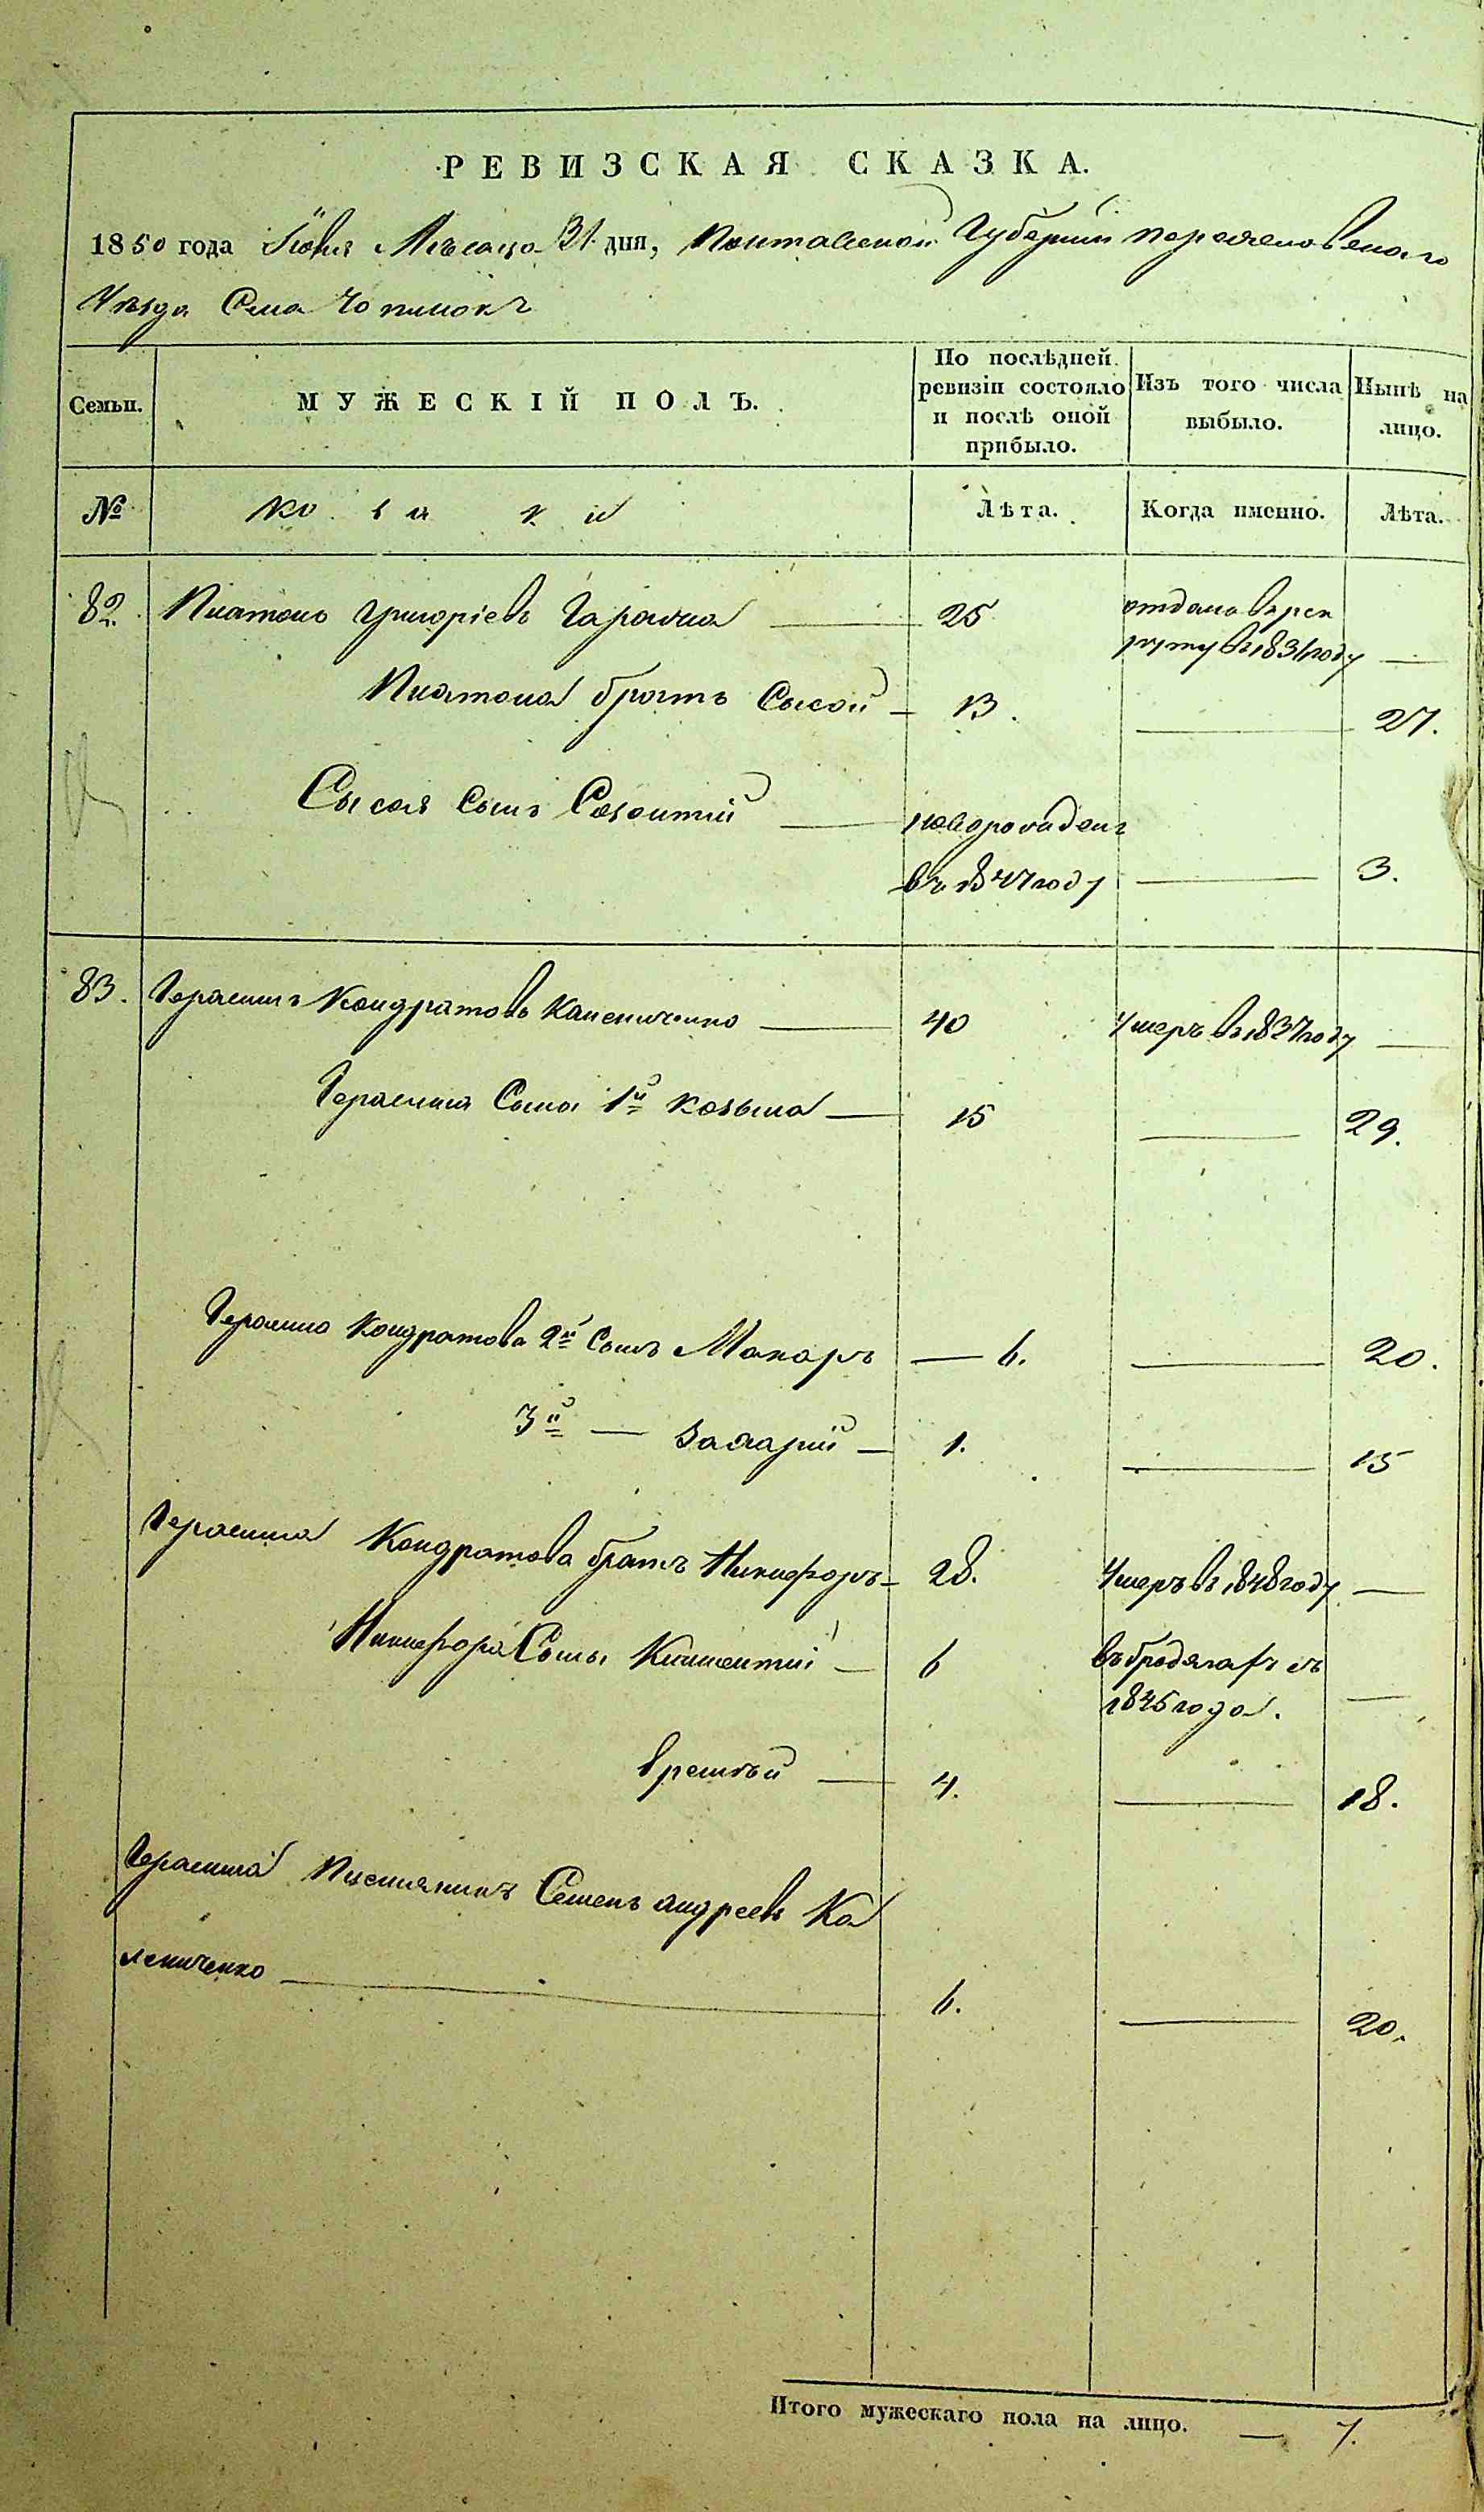 РЕВИЗСКАЯ СКАЗКА.
1850 года Іюля Мѣсяца 31 дня, Полтавской Губерніи Переяславскаго
Уѣзда Села
Семьи. МУЖЕСКІЙ ПОЛЪ. По послѣдней ревизіи состояло и послѣ оной прибыло. Изъ того числа выбыло. Нынѣ на лицо.
№ козаки Лѣта. Когда именно. Лѣта.
82. Платонъ Григоріевъ 25 отданъ в рек
руты в 1831 году —
Платона братъ Сысой — 13. — 27.
Сысоя сынъ Созонтій — новорожденъ
въ 1847 году — 3.
83. Герасимъ Кондратовъ Калениченко — 40 умеръ в 1837 году —
Герасима Сыны 1й Козьма — 15 — 29.
Герасима Кондратова 2й Сынъ Макаръ — 6. — 20.
3й — Захарій — 1. — 15
Герасима Кондратова братъ Никифоръ — 28. умеръ въ 1848 году —
Никифора Сыны Климентій — 6 въ бродягахъ съ
1845 года. —
Еремѣй — 4. — 18.
Герасима Племянникъ Семенъ Андреевъ Ка
лениченко — 6. — 20.
Итого мужескаго пола на лицо. — 7.